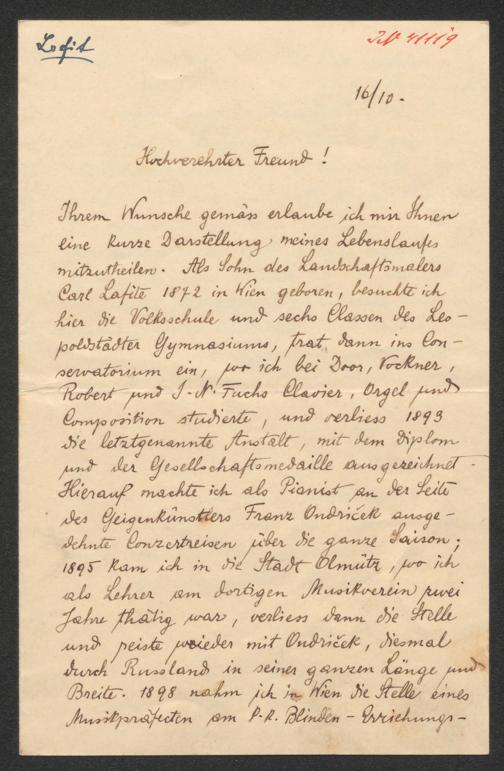 Lafit
16/10.
Hochverehrter Freund!
Ihrem Wunsche gemäss erlaube ich mir Ihnen
eine kurze Darstellung meines Lebenslaufes
mitzutheilen. Als Sohn des Landschaftsmalers
Carl Lafite 1872 in Wien geboren, besuchte ich
hier die Volksschule und sechs Classen des Leo-
poldstädter Gymnasiums, trat dann ins Con-
servatorium ein, wo ich bei Door, Vockner,
Robert und J. N. Fuchs Clavier, Orgel und
Composition studierte, und verliess 1893
die letztgenannte Anstalt, mit dem Diplom
und der Gesellschaftsmedaille ausgezeichnet.
Hierauf machte ich als Pianist an der Seite
des Geigenkünstlers Franz Ondriček ausge-
dehnte Conzertreisen über die ganze Saison;
1895 kam ich in die Stadt Olmütz, wo ich
als Lehrer am dortigen Musikverein zwei
Jahre thätig war, verliess dann die Stelle
und reiste wieder mit Ondriček, diesmal
durch Russland in seiner ganzen Länge und
Breite. 1898 nahm ich in Wien die Stelle eines
Musikpräfecten am k. k. Blinden-Erziehungs-